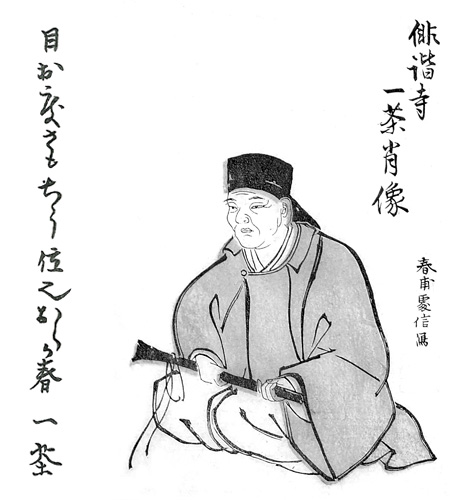 俳諧寺
一茶肖像
春甫信寫
目出度さもちう位也おらか春 一茶